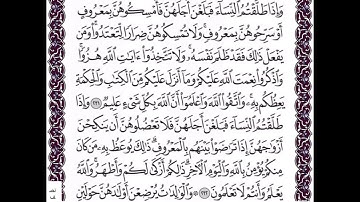 وَإِذَا طَلَّقْتُمُ النِّسَاءَ فَبَلَغْنَ أَجَلَهُنَّ فَأَمْسِكُوهُنَّ بِمَعْرُوفٍ
أَوْ سَرِّحُوهُنَّ بِمَعْرُوفٍ وَلَا تُمْسِكُوهُنَّ ضِرَارًا لِّتَعْتَدُوا وَمَن
يَفْعَلْ ذَٰلِكَ فَقَدْ ظَلَمَ نَفْسَهُ وَلَا تَتَّخِذُوا آيَاتِ اللَّهِ هُزُوًا
وَاذْكُرُوا نِعْمَتَ اللَّهِ عَلَيْكُمْ وَمَا أَنزَلَ عَلَيْكُم مِّنَ الْكِتَابِ وَالْحِكْمَةِ
يَعِظُكُم بِهِ وَاتَّقُوا اللَّهَ وَاعْلَمُوا أَنَّ اللَّهَ بِكُلِّ شَيْءٍ عَلِيمٌ ٢٣١ وَإِذَا
طَلَّقْتُمُ النِّسَاءَ فَبَلَغْنَ أَجَلَهُنَّ فَلَا تَعْضُلُوهُنَّ أَن يَنكِحْنَ
أَزْوَاجَهُنَّ إِذَا تَرَاضَوْا بَيْنَهُم بِالْمَعْرُوفِ ذَٰلِكَ يُوعَظُ بِهِ مَن كَانَ
مِنكُمْ يُؤْمِنُ بِاللَّهِ وَالْيَوْمِ الْآخِرِ ذَٰلِكُمْ أَزْكَىٰ لَكُمْ وَأَطْهَرُ وَاللَّهُ
يَعْلَمُ وَأَنتُمْ لَا تَعْلَمُونَ ٢٣٢ ۞ وَالْوَالِدَاتُ يُرْضِعْنَ أَوْلَادَهُنَّ حَوْلَيْنِ